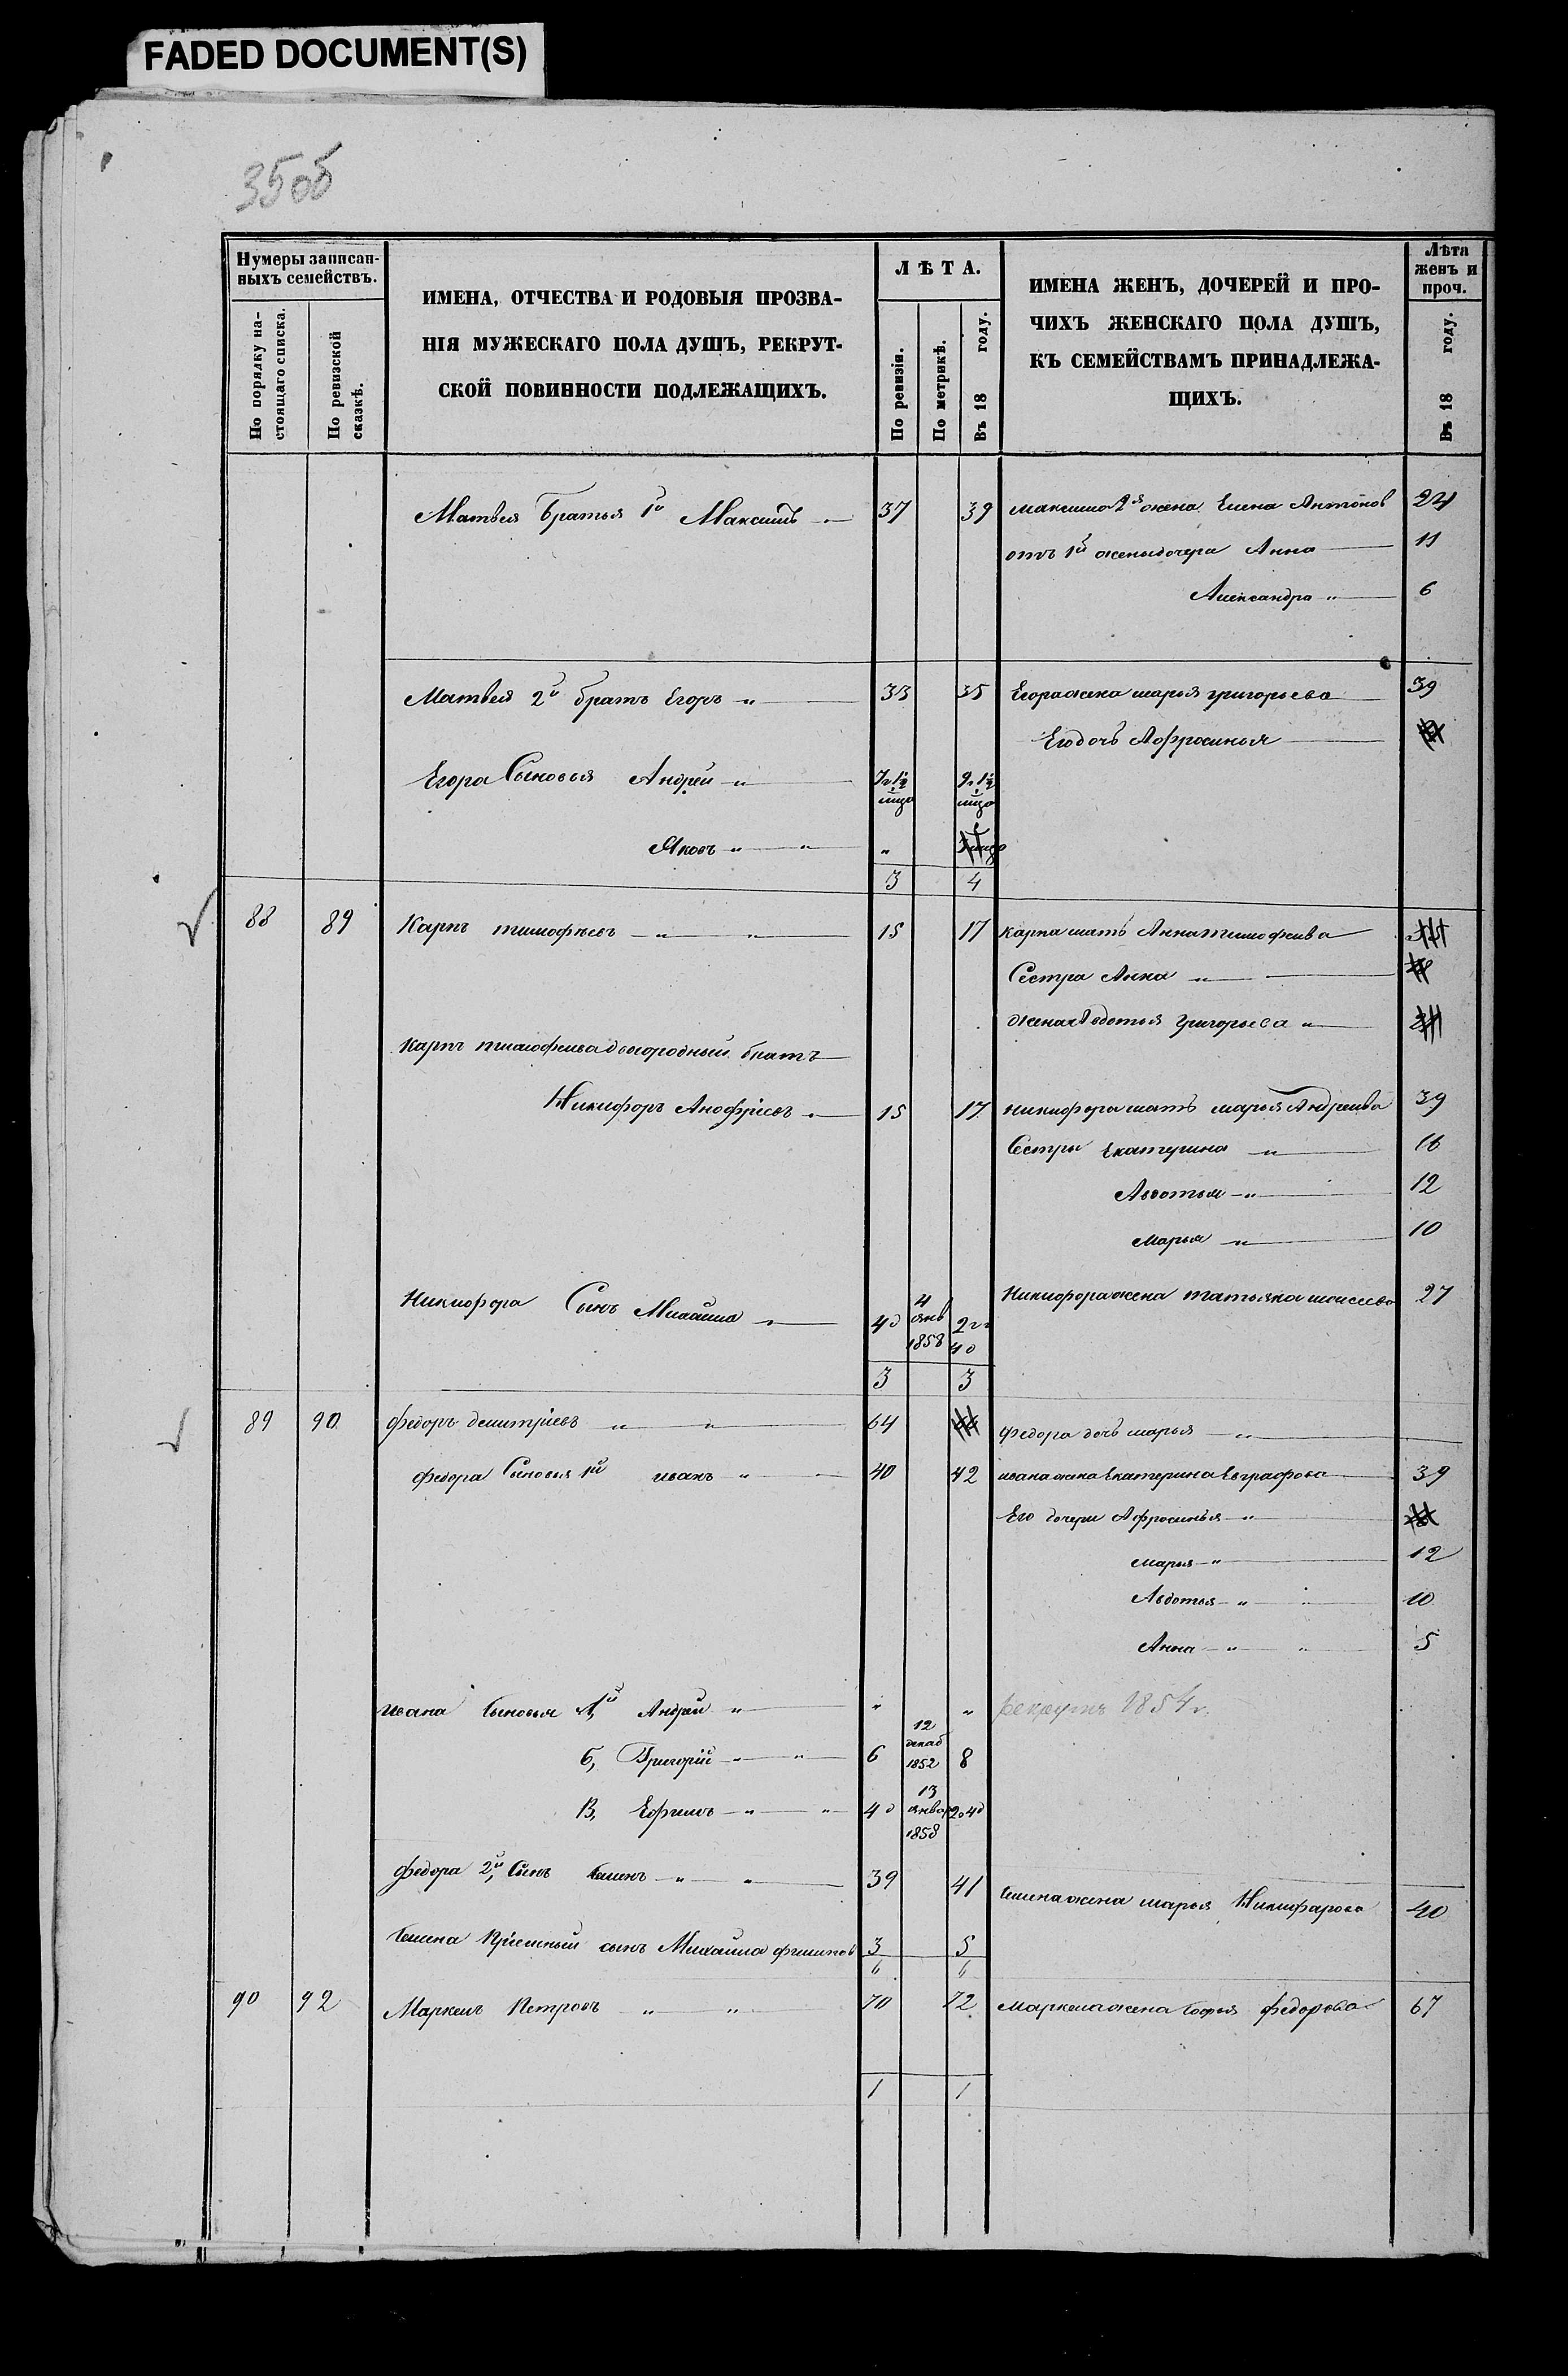 FADED DOCUMENT(S)
35об
Нумеры записан-
ныхъ семействъ.
По порядку на-
стоящаго списка.
По ревизской
сказкѣ.
ИМЕНА, ОТЧЕСТВА И РОДОВЫЯ ПРОЗВА-
НІЯ МУЖЕСКАГО ПОЛА ДУШЪ, РЕКРУТ-
СКОЙ ПОВИННОСТИ ПОДЛЕЖАЩИХЪ.
ЛѢТА.
По ревизіи.
По метрикѣ.
Въ 18 году.
ИМЕНА ЖЕНЪ, ДОЧЕРЕЙ И ПРО-
ЧИХЪ ЖЕНСКАГО ПОЛА ДУШЪ,
КЪ СЕМЕЙСТВАМЪ ПРИНАДЛЕЖА-
ЩИХЪ.
Лѣта
женъ и
проч.
Въ 18 году.
Матвея Братья 1й Максимъ 37 39 Максима 2я жена Елена Антонов 24
отъ 1й жены дочери Анна 11
Александра 6
Матвея 2й братъ Егоръ 33 35 Егора жена марья григорьева 39
Его дочь Афросинья
Егора Сыновья Андрей
Яковъ "
3 4
88 89 Карпъ тимофѣевъ 15 17 Карпа мать Анна тимофеива
Сестра Анна
жена Авдотья Григорьева
Карпа тимофеива двоюродный братъ
Никифоръ Анофріевъ 15 17 никифора мать марья Андреива 39
Сестры Екатерина 16
Авдотья 12
марья 10
Никифора Сынъ Михайла 4д 4 янв 1858 2г 4д Никифора жена татьяна моисеева 27
3 3
89 90 федоръ дмитріевъ 64 федора дочь марья
федора Сыновья 1й иванъ 40 42 ивана жена Екатерина Евграфова 39
Его дочери Афросинья
марья 12
Авдотья 10
Анна 5
ивана Сыновья А, Андрей " " рекрутъ 1854 г.
Б, Григорій 6 12 декаб 1852 8
В, Ефимъ 4д 13 январ 1858 2г4д
федора 2й, Сынъ Семенъ 39 41 Семена жена марья Никифарова 40
Семена Пріемный сынъ Михайла филипов 3 5
" "
90 92 Маркелъ Петровъ 70 72 маркела жена Софья федорова 67
1 1